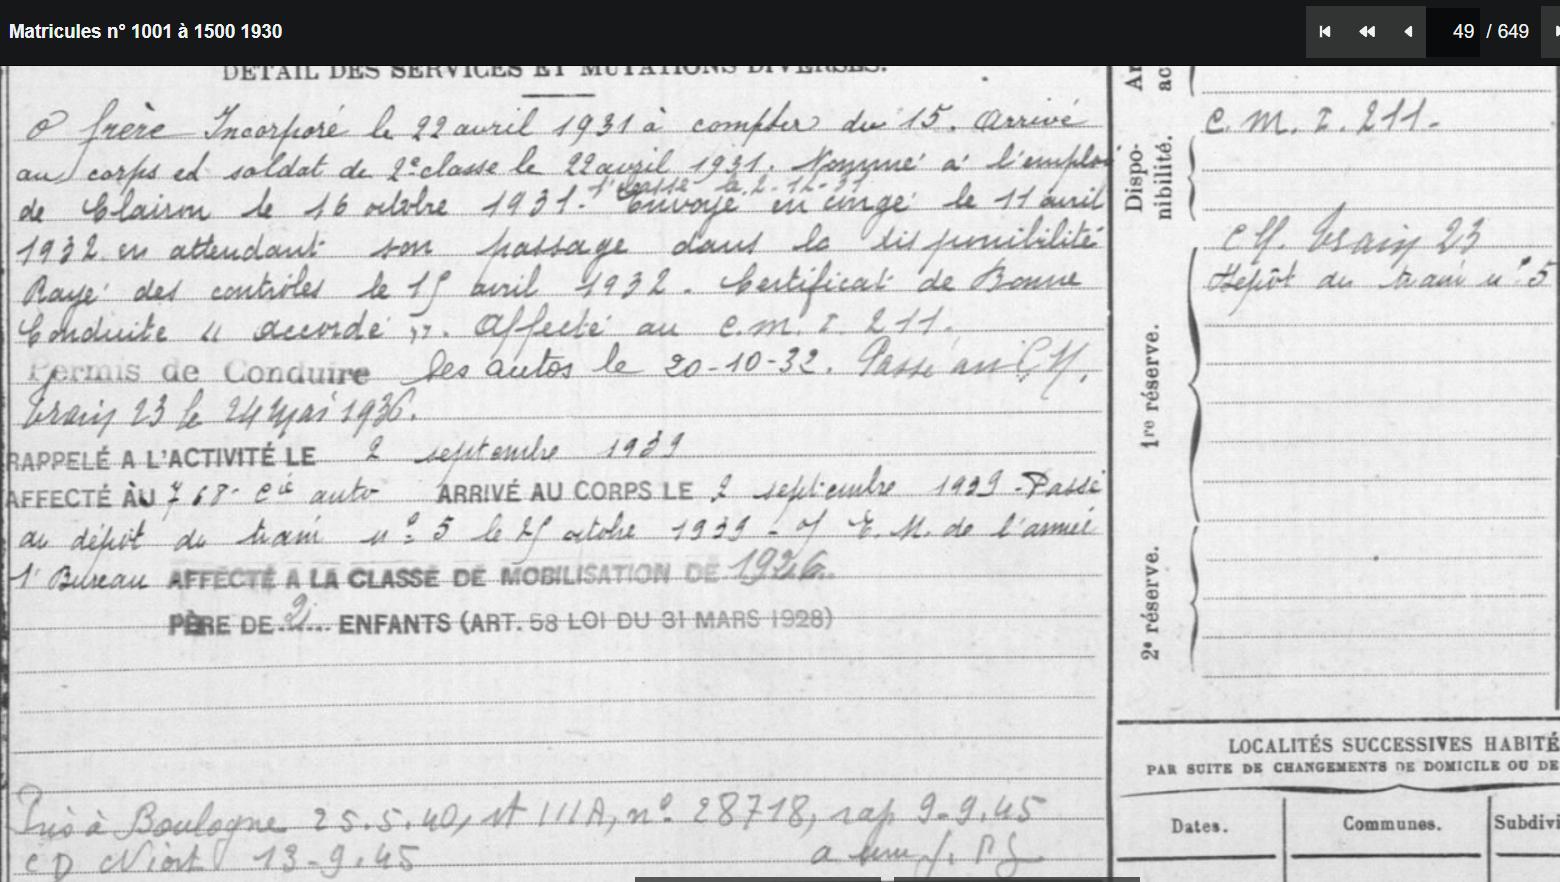 Matricules n° 1001 à 1500 1930
49 / 649
DÉTAIL DES SERVICES ET MUTATIONS DIVERSES.
frère Incorporé le 22 avril 1931 à compter du 15. Arrivé
au corps et soldat de 2e classe le 22 avril 1931. Nommé à l'emploi
classe le 2-12-31
de Clairon le 16 octobre 1931. Envoyé en congé le 11 avril
1932 en attendant son passage dans la disponibilité
Rayé des contrôles le 15 avril 1932. Certificat de Bonne
Conduite "accordé". Affecté au C.M.I. 211.
Permis de Conduire les autos le 20-10-32. Passé au C.M.
train 23 le 24 Mai 1936.
RAPPELÉ A L'ACTIVITÉ LE 2 septembre 1939
AFFECTÉ AU 768e Cie auto ARRIVÉ AU CORPS LE 2 septembre 1939 - Passé
au dépôt du train n° 5 le 25 octobre 1939 - E. M. de l'armée
1er Bureau AFFECTÉ A LA CLASSE DE MOBILISATION DE 1926
PÈRE DE 2 ENFANTS (ART. 58 LOI DU 31 MARS 1928)
Pris à Boulogne 25.5.40, st IIIA, n° 28718, rap 9-9.45
CD Niort 13-9.45
Dispo-
nibilité.
C. M. I. 211.
1re réserve.
C M. train 23
Dépôt du train n° 5
2e réserve.
LOCALITÉS SUCCESSIVES HABITÉ
PAR SUITE DE CHANGEMENTS DE DOMICILE OU DE
Dates. Communes. Subdivi